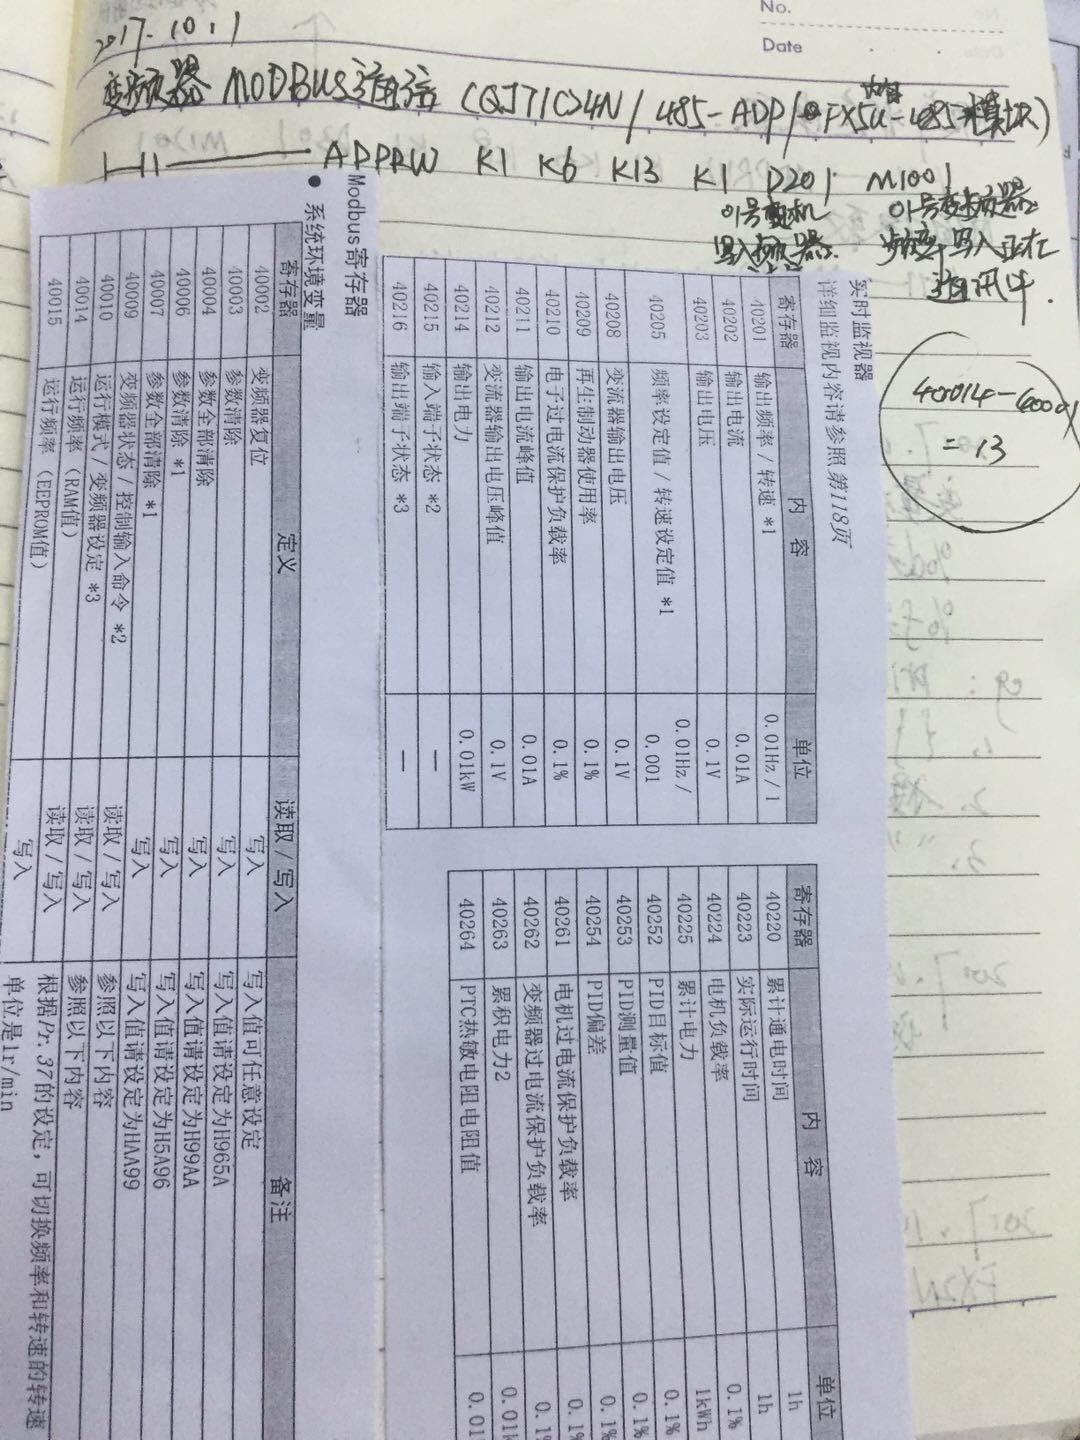 No.
Date
2017.10.1
变频器 MODBUS通信 (QJ71C24N / 485-ADP / FX5U-485模块)
内置
ADPRW K1 K6 K13 K1 D201 M1001
01号变频器
写入
频率写入正在
通讯中.
40014-40001
=13
Modbus寄存器
● 系统环境变量
寄存器 定义 读取/写入 备注
40002 变频器复位 写入 写入值可任意设定
40003 参数清除 写入 写入值请设定为H965A
40004 参数全部清除 写入 写入值请设定为H99AA
40006 参数清除 *1 写入 写入值请设定为H5A96
40007 参数全部清除 *1 写入 写入值请设定为HAA99
40009 变频器状态/控制输入命令 *2 读取/写入 参照以下内容
40010 运行模式/变频器设定 *3 读取/写入 参照以下内容
40014 运行频率（RAM值） 读取/写入 根据Pr.37的设定，可切换频率和转速的转速
40015 运行频率（EEPROM值） 写入 单位是1r/min
实时监视器
详细监视内容请参照第118页
寄存器 内 容 单位
40201 输出频率/转速 *1 0.01Hz/1
40202 输出电流 0.01A
40203 输出电压 0.1V
40205 频率设定值/转速设定值 *1 0.01Hz/
0.001
40208 变流器输出电压 0.1V
40209 再生制动器使用率 0.1%
40210 电子过电流保护负载率 0.1%
40211 输出电流峰值 0.01A
40212 变流器输出电压峰值 0.1V
40214 输出电力 0.01kW
40215 输入端子状态 *2 —
40216 输出端子状态 *3 —
寄存器 内 容 单位
40220 累计通电时间 1h
40223 实际运行时间 1h
40224 电机负载率 0.1%
40225 累计电力 1kWh
40252 PID目标值 0.1%
40253 PID测量值 0.1%
40254 PID偏差 0.1%
40261 电机过电流保护负载率 0.1%
40262 变频器过电流保护负载率 0.1
40263 累积电力2 0.01k
40264 PTC热敏电阻电阻值 0.01